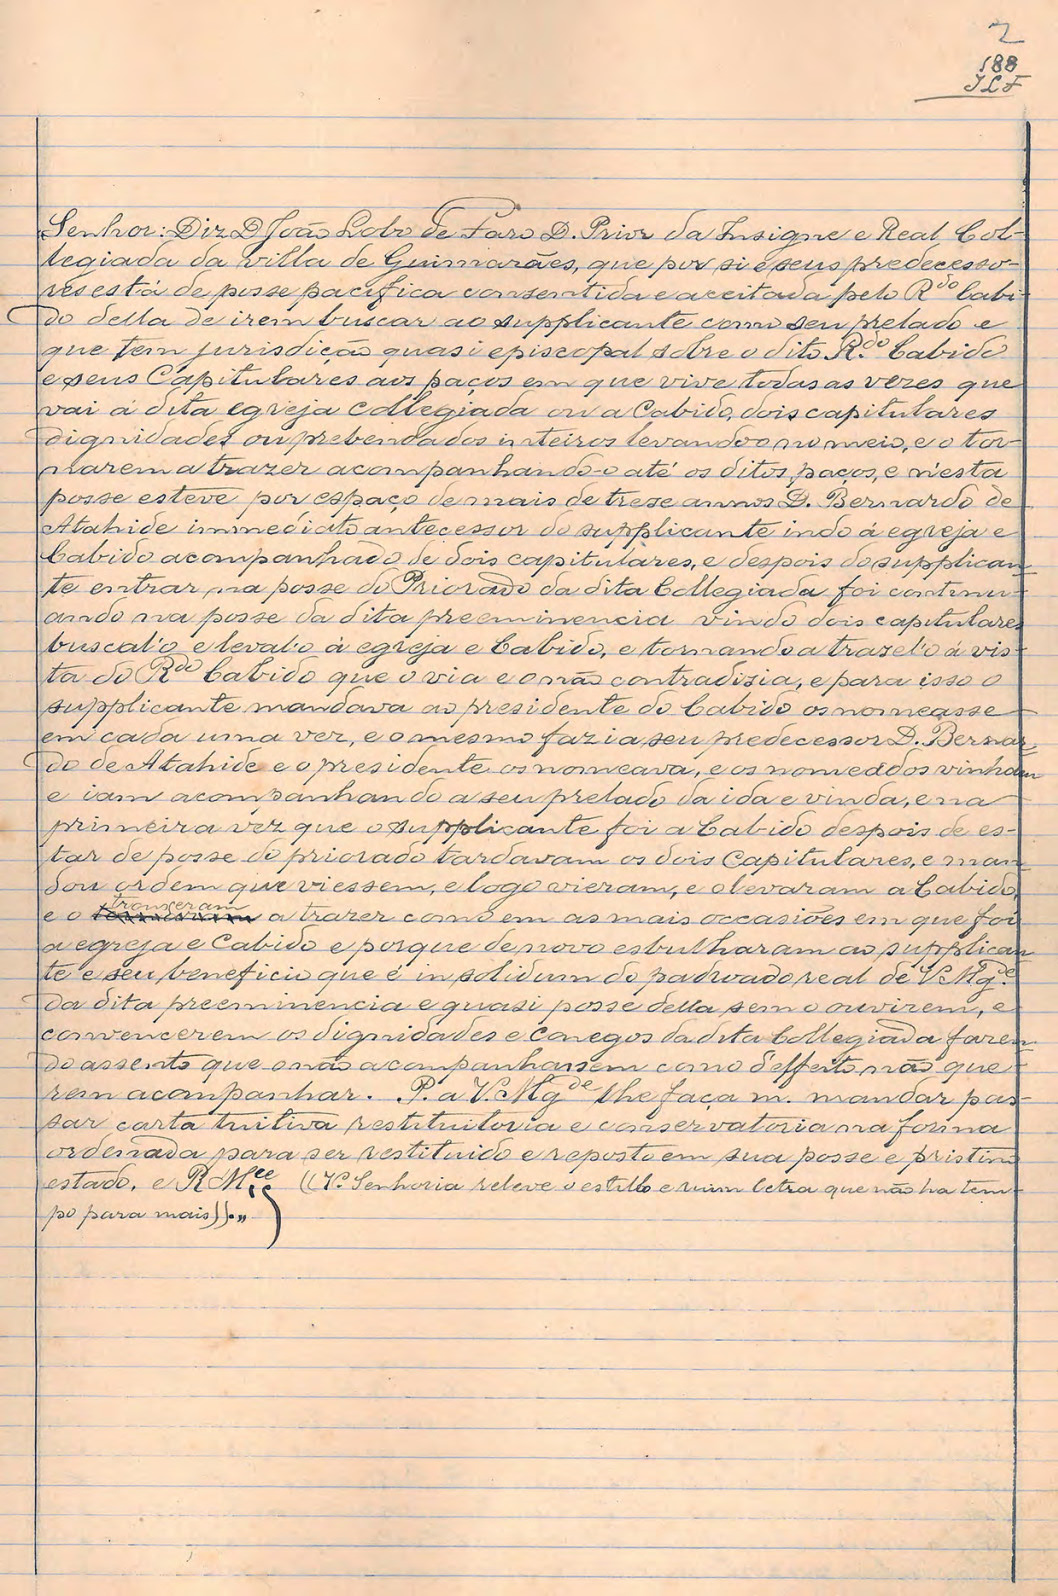 2
188
JLF
Senhor: Diz D João Lobo de Faro D. Prior da Insigne e Real Col-
legiada da villa de Guimarães, que por si e seus predecesso-
res está de posse pacifica consentida e aceitada pelo R.do Cabi-
do della de irem buscar ao supplicante como seu prelado e
que tem jurisdição quasi episcopal sobre o dito R.do Cabido
e seus Capitulares aos paços em que vive todas as vezes que
vai á dita egreja collegiada ou a Cabido, dois capitulares
dignidades ou prebendados inteiros levando-o no meio, e o tor-
narem a trazer acompanhando-o até os ditos paços, e n'esta
posse esteve por espaço de mais de trese annos D. Bernardo de
Atahide immediato antecessor do supplicante indo á egreja e
Cabido acompanhado de dois capitulares, e despois do supplican-
te entrar na posse do Priorado da dita Collegiada foi continu-
ando na posse da dita preeminencia vindo dois capitulares
buscal'o e leval'o á egreja e Cabido, e tornando a trazel'o á vis-
ta do R.do Cabido que o via e o não contradisia, e para isso o
supplicante mandava ao presidente do Cabido os nomeasse
em cada uma vez, e o mesmo fazia seu predecessor D. Bernar-
do de Atahide e o presidente os nomeava, e os nomeados vinham
e iam acompanhando a seu prelado da ida e vinda, e na
primeira vez que o supplicante foi a Cabido despois de es-
tar de posse do priorado tardavam os dois Capitulares, e man-
dou ordem que viessem, e logo vieram, e o levaram a Cabido,
e o trouxeram a trazer como em as mais occasiões em que foi
a egreja e Cabido e porque de novo esbulharam ao supplican-
te e seu beneficio que é in solidum do padroado real de V. Mg.de
da dita preeminencia e quasi posse della sem o ouvirem, e
convencerem os dignidades e conegos da dita Collegiada fazen-
do assento que o não acompanhassem como d'effeito não que-
rem acompanhar. P. a V. Mg.de lhe faça m. mandar pas-
sar carta tuitiva restituitoria e conservatoria na forma
ordenada para ser restituido e reposto em sua posse e pristino
estado, e R M.cê ((V.ª Senhoria releve o estillo e ruim letra que não ha tem-
po para mais)).„